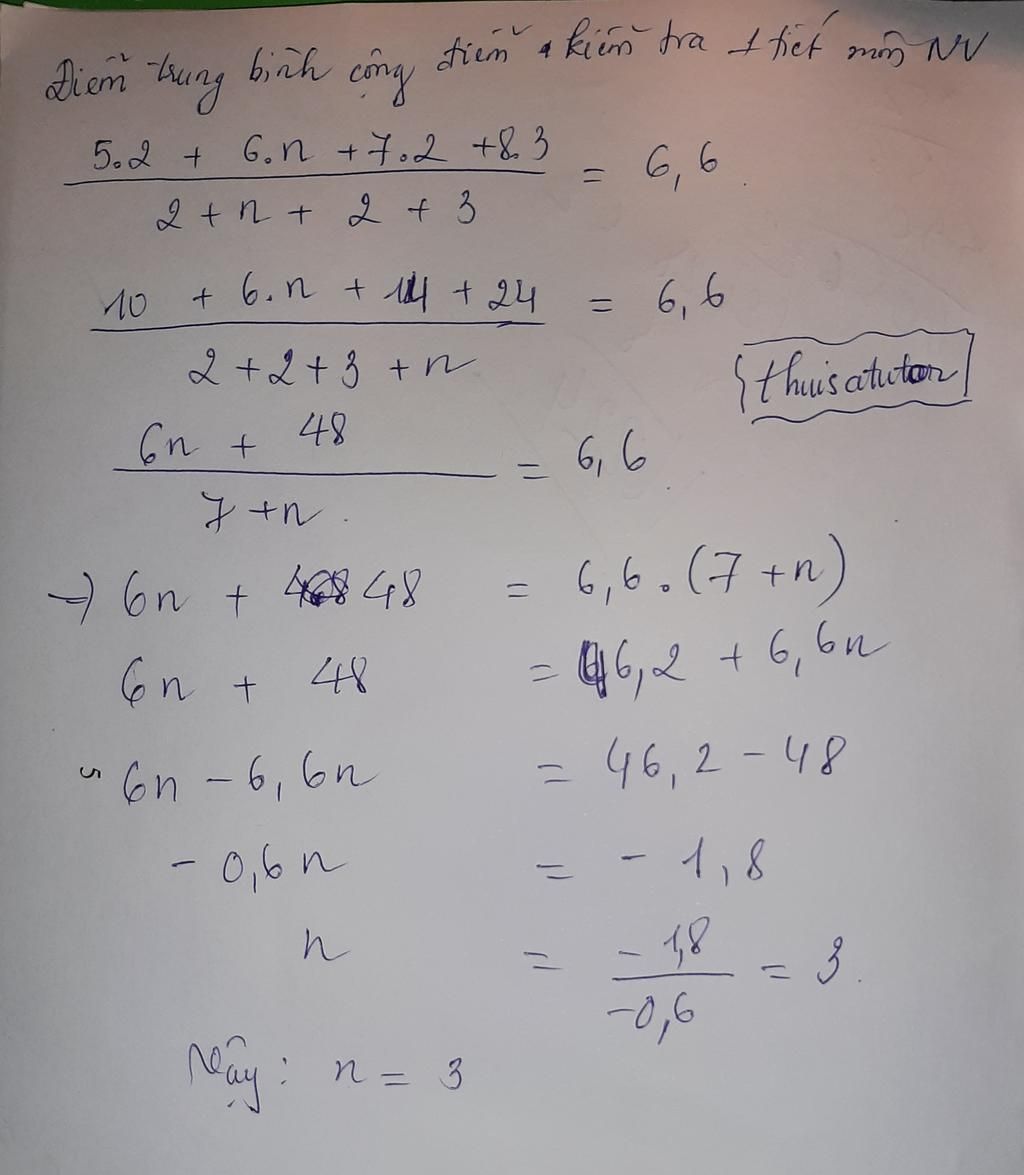 Điểm trung bình cộng điểm kiểm tra 1 tiết môn NV
5.2 + 6.n + 7.2 + 8.3 = 6,6
2 + n + 2 + 3
10 + 6.n + 14 + 24 = 6,6
2 + 2 + 3 + n
thuisatutor
6n + 48 = 6,6
7 + n
=> 6n + 48 = 6,6.(7 + n)
6n + 48 = 46,2 + 6,6n
6n - 6,6n = 46,2 - 48
- 0,6n = - 1,8
n = -1,8 = 3
-0,6
Vậy: n = 3